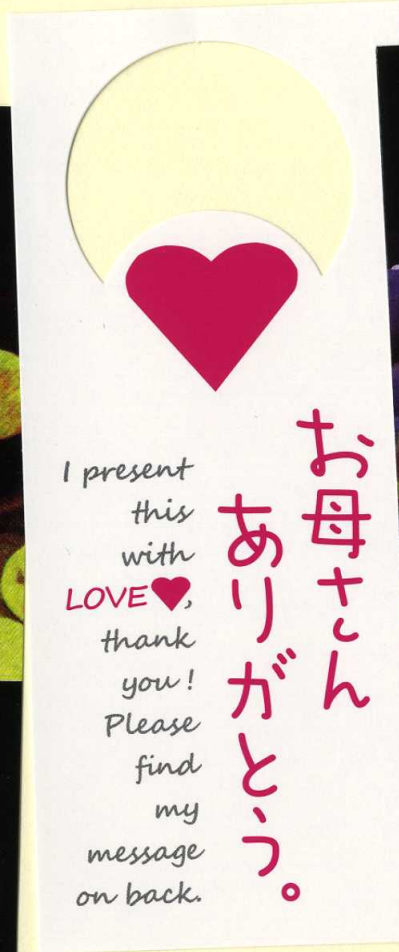 お母さん
ありがとう。
I present
this
with
LOVE♥,
thank
you!
Please
find
my
message
on back.